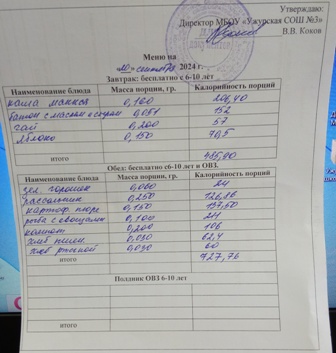 Утверждаю:
Директор МБОУ «Ужурская СОШ №3»
В.В. Коков
Меню на
«20» сентября 2024 г.
Завтрак: бесплатно с 6-10 лет
Наименование блюда Масса порции, гр. Калорийность порций
каша манная 0,160 206,40
батон с маслом и сыром 0,051 152
чай 0,200 57
Яблоко 0,150 70,5
итого 485,90
Обед: бесплатно с6-10 лет и ОВЗ.
Наименование блюда Масса порции, гр. Калорийность порций
зел. горошек 0,060 24
рассольник 0,250 126,16
картоф. пюре 0,150 137,50
рыба с овощами 0,100 211
компот 0,200 106
хлеб пшен. 0,030 62,4
хлеб ржаной 0,030 60
итого 727,76
Полдник ОВЗ 6-10 лет
итого